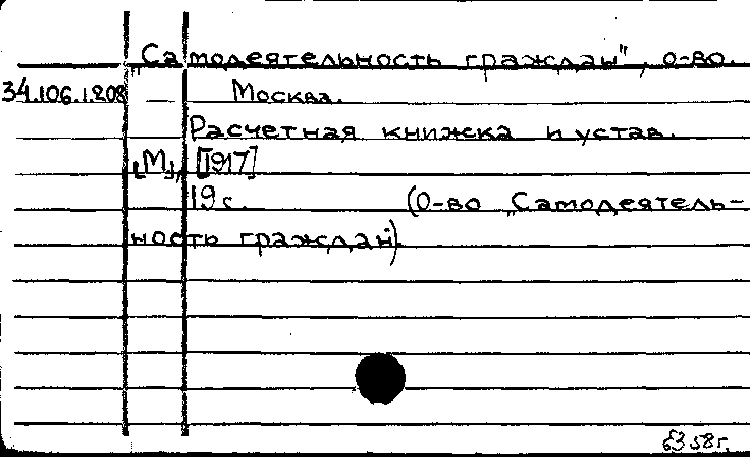 „Самодеятельность граждан", о-во.
34.106.1.208 — Москва.
Расчетная книжка и устав.
[М.], [1917]
19 с. (О-во „Самодеятель-
ность граждан").
58 г.